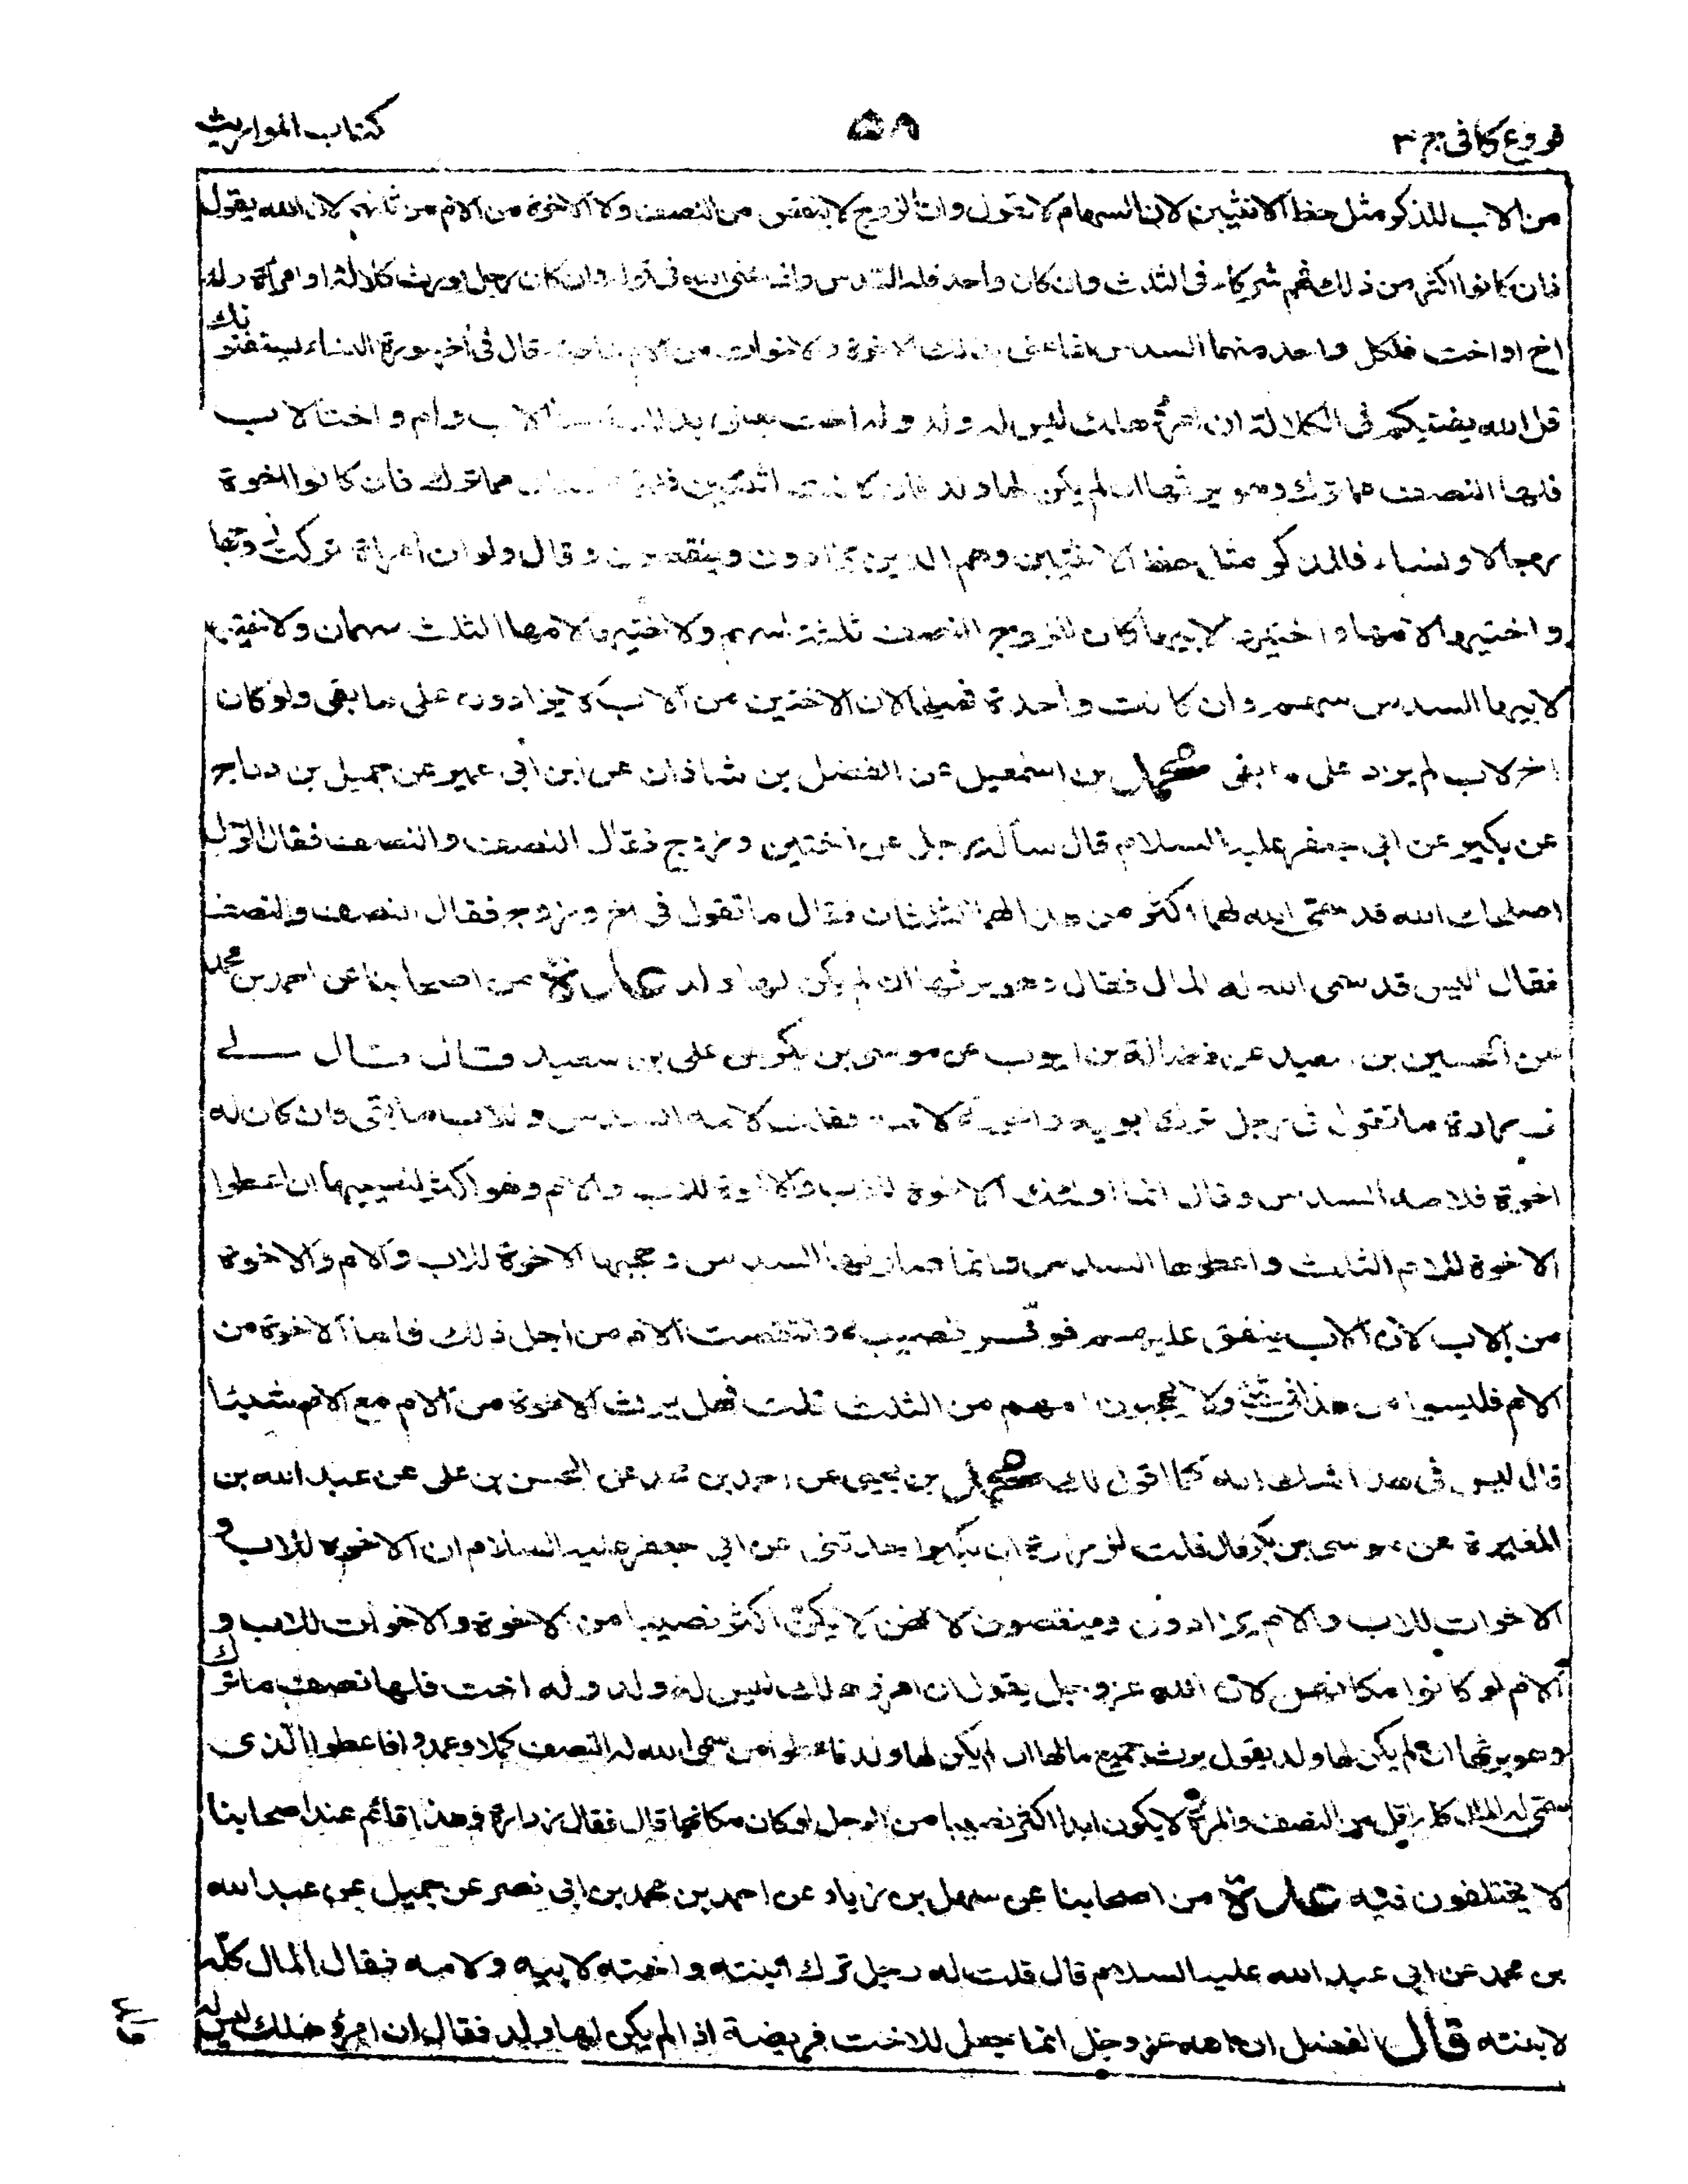 فروع کافی ج ۳
۵۸
کتاب المواریث
من الاب للذکر مثل حظ الانثیین لان السهام لا تعول وان الزوج لا ینقص من النصف ولا الاخوة من الام من ثلثهم لان الله یقول
فان کانوا اکثر من ذلک فهم شرکاء فی الثلث وان کان واحد فله السدس وانما عنی الله فی قوله وان کان رجل یورث کلالة او امرأة وله
اخ او اخت فلکل واحد منهما السدس انما عنی بذلک الاخوة والاخوات من الام خاصة وقال فی آخر سورة النساء یستفتونک
قل الله یفتیکم فی الکلالة ان امرؤ هلک لیس له ولد وله اخت یعنی بذلک اختا لاب وام واختا لاب
فلها النصف مما ترک وهو یرثها ان لم یکن لها ولد فان کانتا اثنتین فلهما الثلثان مما ترک فان کانوا اخوة
رجالا ونساء فللذکر مثل حظ الانثیین وهم الذین یزادون وینقصون وقال ولو ان امرأة ترکت زوجها
واختیها لامها واختیها لابیها کان للزوج النصف ثلثة اسهم ولاختیها لامها الثلث سهمان ولاختیها
لابیها السدس سهم وان کانت واحدة فهو لها لان الاختین من الاب لا یزادون علی ما بقی ولو کان
اخ لاب لم یزد علی ما بقی محمد بن اسمعیل عن الفضل بن شاذان عن ابن ابی عمیر عن جمیل بن دراج
عن بکیر عن ابی جعفر علیه السلام قال سأله رجل عن اختین وزوج فقال النصف والنصف فقال الرجل
اصلحک الله قد سمی الله لهما اکثر من هذا لهما الثلثان فقال ما تقول فی اخ وزوج فقال النصف والنصف
فقال الیس قد سمی الله له المال فقال وهو یرثها ان لم یکن لها ولد عدة من اصحابنا عن احمد بن محمد
عن الحسین بن سعید عن فضالة بن ایوب عن موسی بن بکر عن علی بن سعید قال قال لی
زرارة ما تقول فی رجل ترک ابویه واخوته لامه فقلت لامه السدس وللاب ما بقی وان کان له
اخوة فلامه السدس وقال انما اولئک الاخوة للاب والاخوة للاب والام وهو اکثر لنصیبها ان اعطوا
الاخوة للام الثلث واعطوها السدس وانما صار لها السدس وحجبها الاخوة للاب والام والاخوة
من الاب لان الاب ینفق علیهم فوفر نصیبه وانتقصت الام من اجل ذلک فاما الاخوة من
الام فلیسوا من هذا فی شیء ولا یحجبون امهم من الثلث قلت فهل یرث الاخوة من الام مع الام شیئا
قال لیس فی هذا شک انه کما اقول لک محمد بن یحیی عن احمد بن محمد عن الحسن بن علی عن عبد الله بن
المغیرة عن موسی بن بکر قال قلت لزرارة ان بکیرا حدثنی عن ابی جعفر علیه السلام ان الاخوة للاب و
الاخوات للاب والام یزادون وینقصون لانهن لا یکن اکثر نصیبا من الاخوة والاخوات للاب و
الام لو کانوا مکانهن لان الله عز وجل یقول ان امرؤ هلک لیس له ولد وله اخت فلها نصف ما ترک
وهو یرثها ان لم یکن لها ولد یقول یرث جمیع مالها ان لم یکن لها ولد فاعطوا من سمی الله له النصف کملا وعمدوا فاعطوا الذی
سمی له المال کله اقل من النصف والمرأة لا یکون ابدا اکثر نصیبا من الرجل لو کان مکانها قال فقال زرارة وهذا قائم عند اصحابنا
لا یختلفون فیه عدة من اصحابنا عن سهل بن زیاد عن احمد بن محمد بن ابی نصر عن جمیل عن عبد الله
بن محمد عن ابی عبد الله علیه السلام قال قلت له رجل ترک ابنته واخته لابیه ولامه فقال المال کله
لابنته قال الفضل ان الله عز وجل انما جعل للاخت فریضة اذا لم یکن لها ولد فقال ان امرؤ هلک لیس له